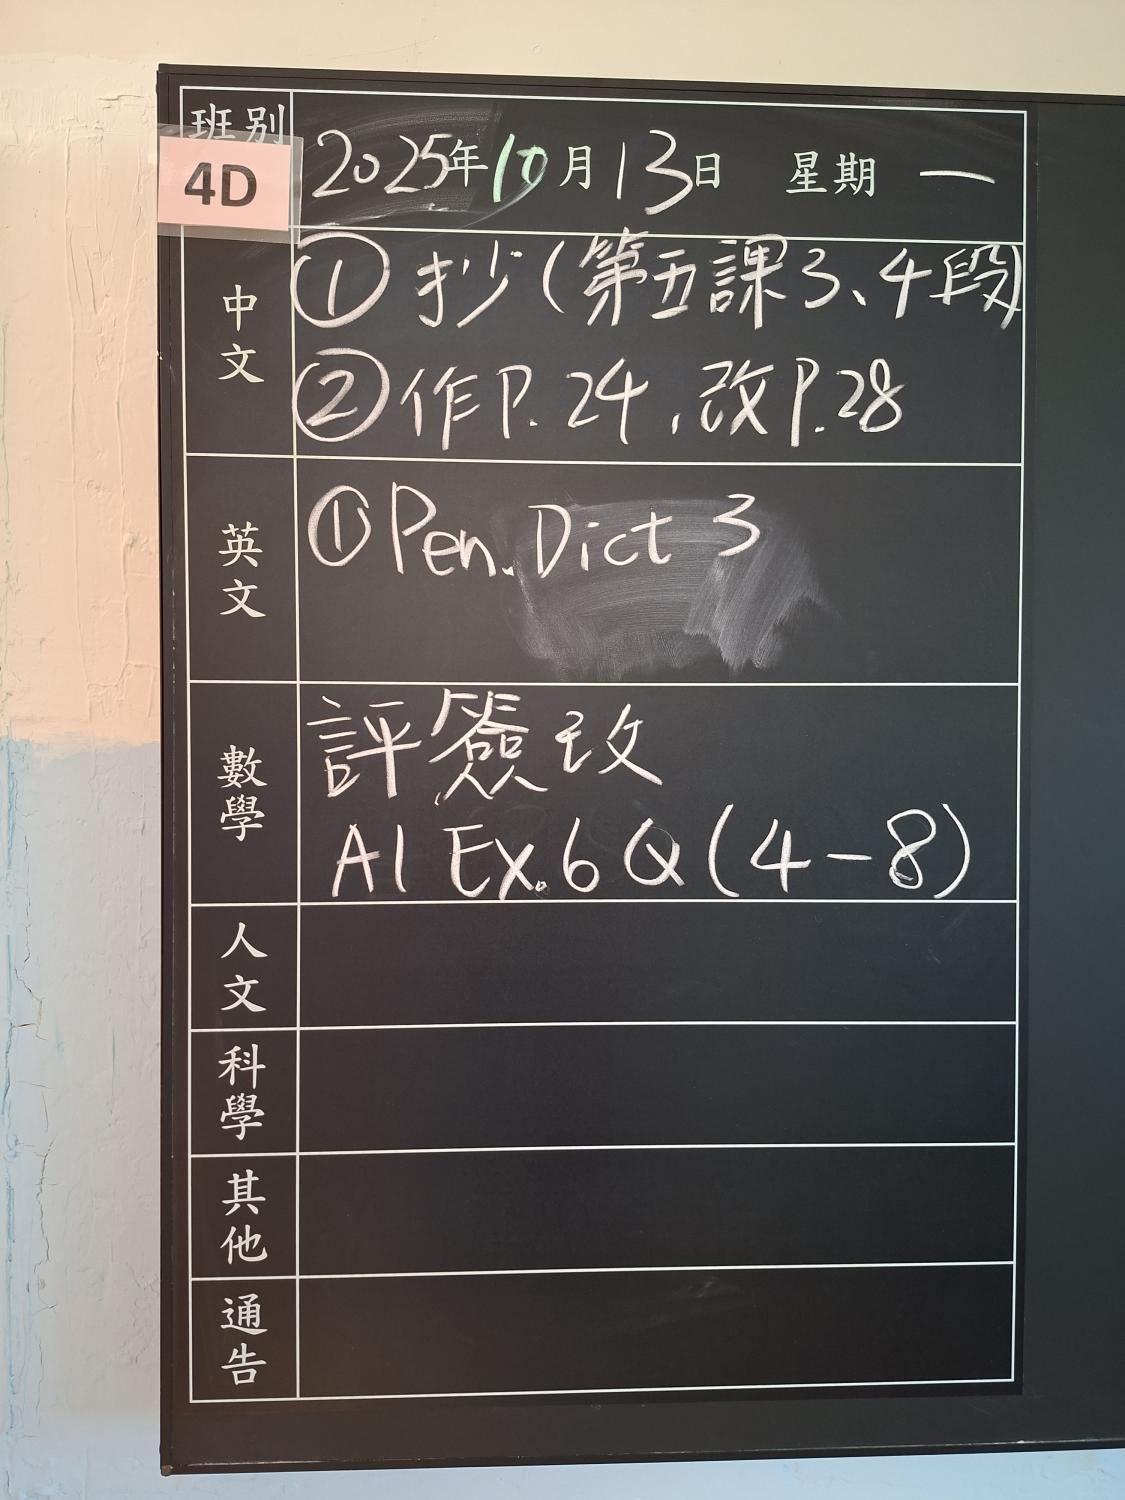 班別
4D
2025年10月13日 星期一
中文
① 抄(第五課3、4段)
② 作P.24，改P.28
英文
① Pen. Dict 3
數學
評簽改
A1 Ex.6 Q(4-8)
人文
科學
其他
通告